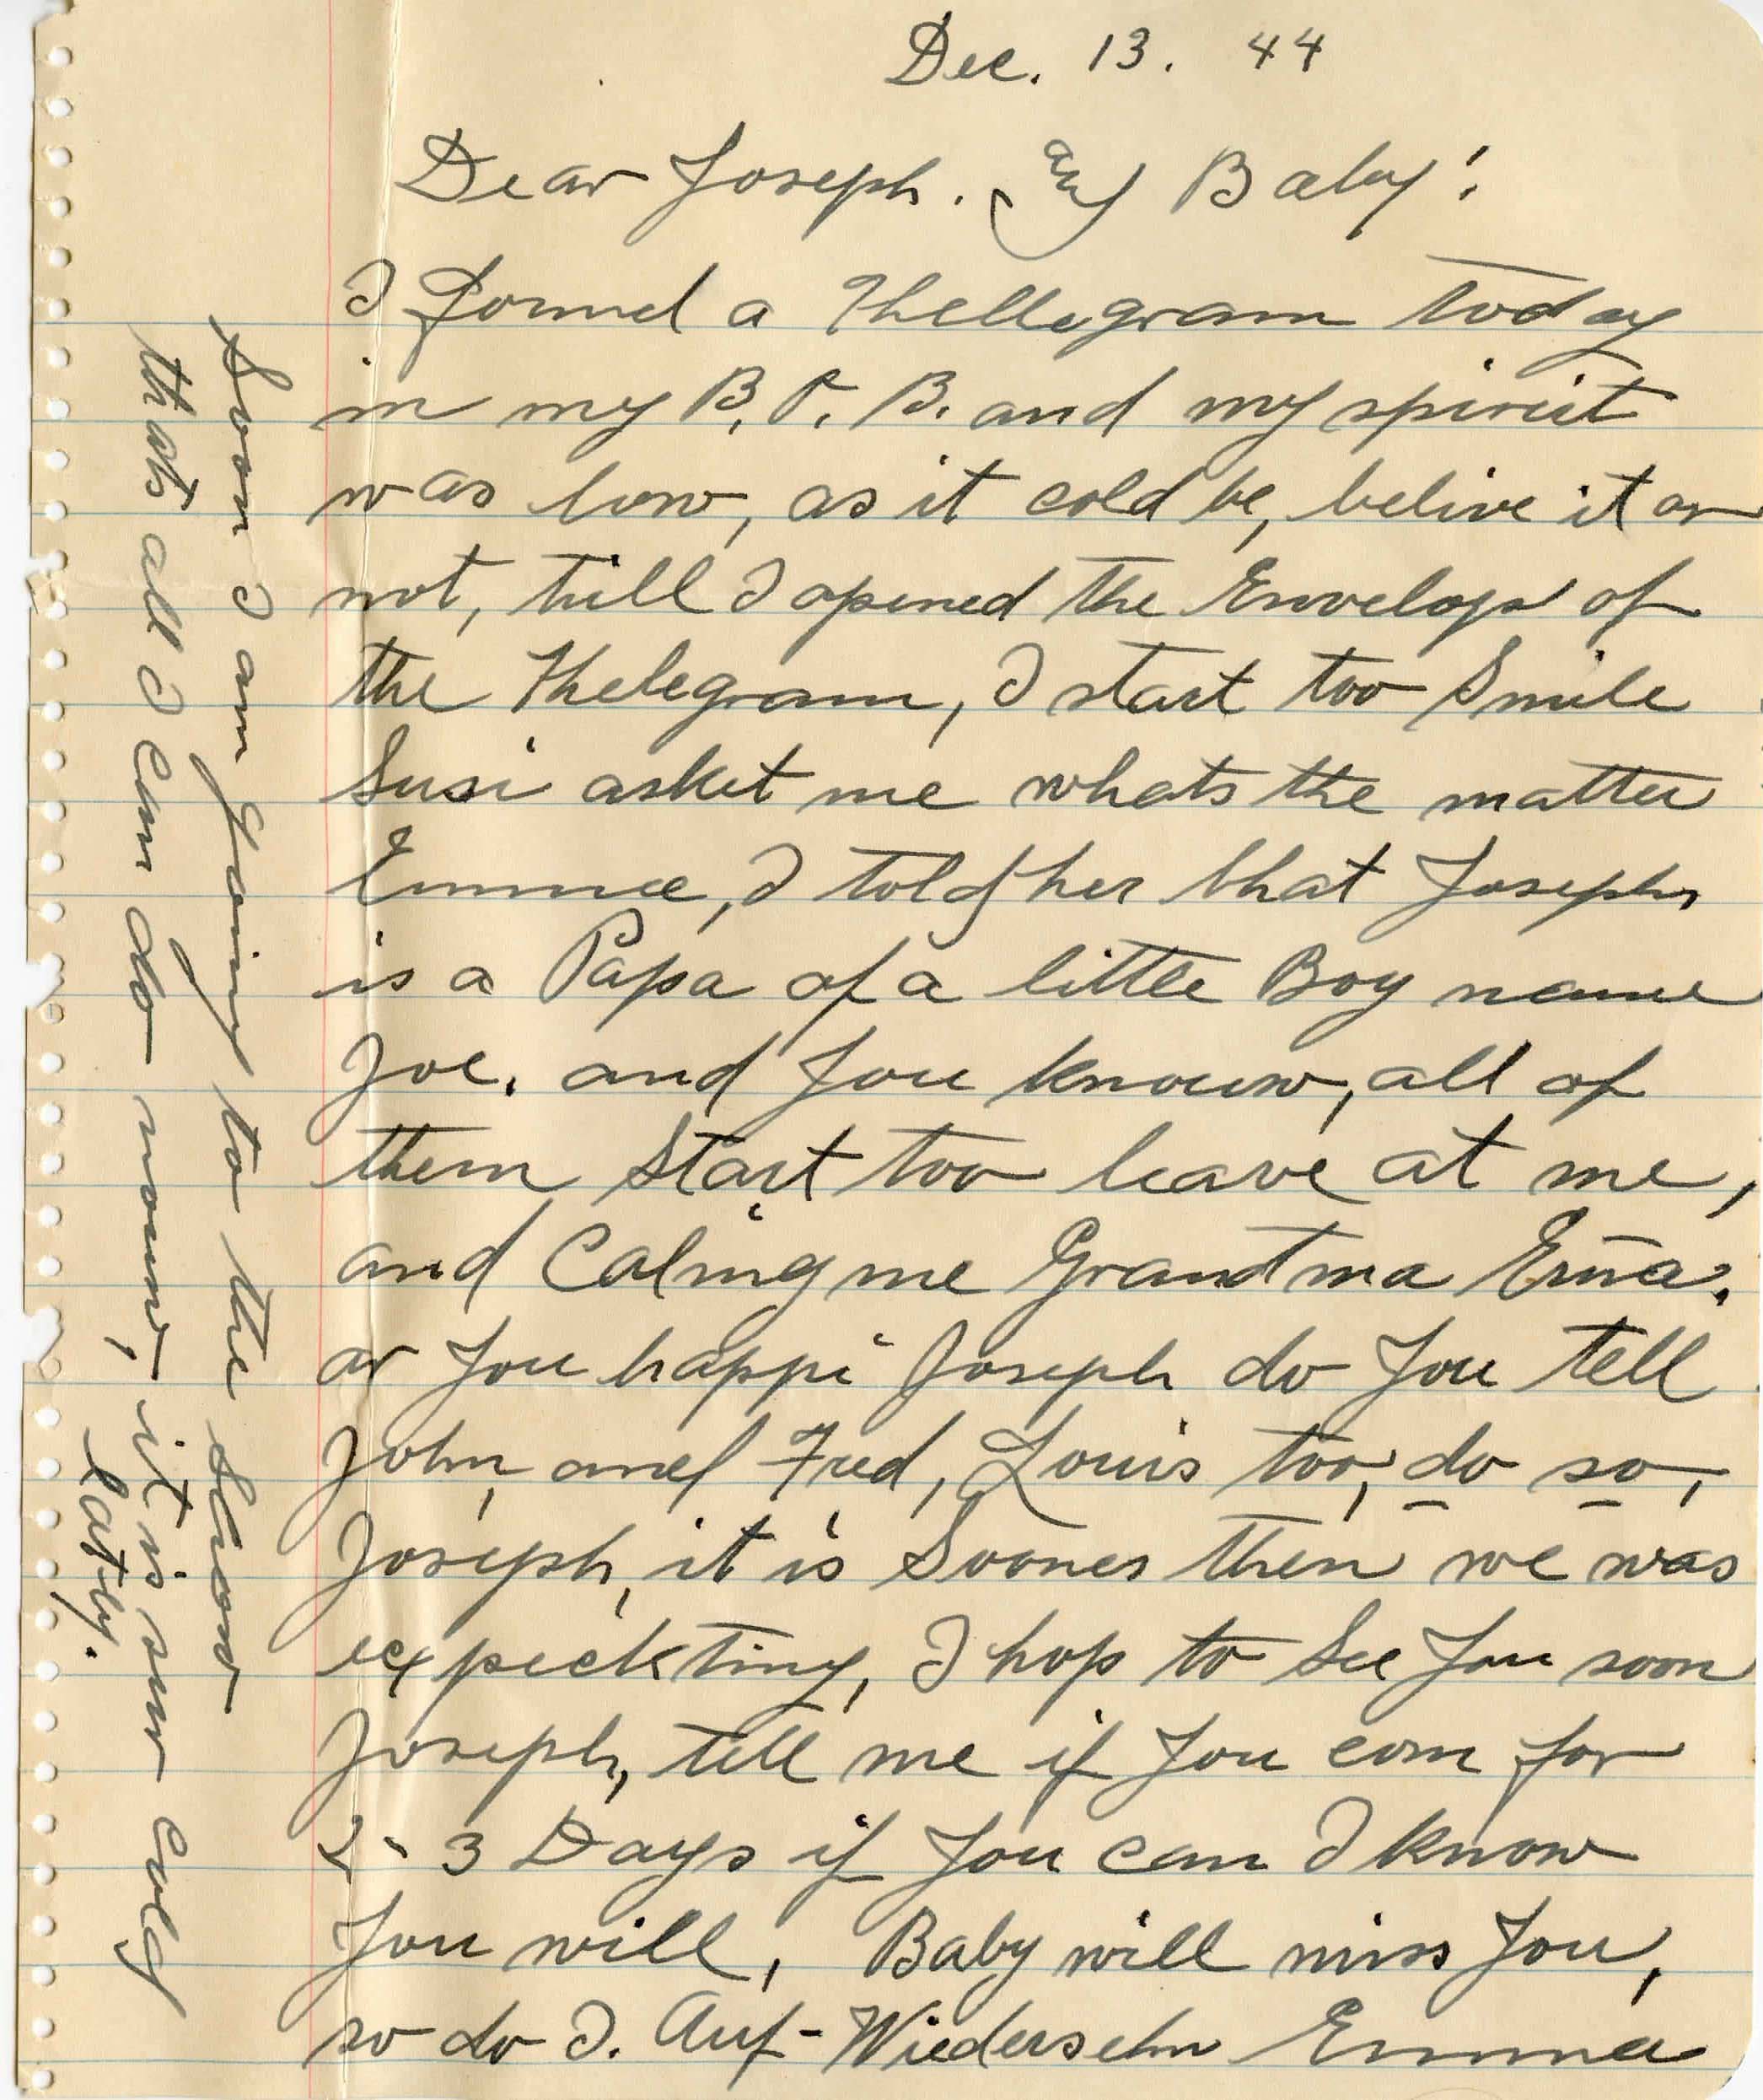 Dec. 13. 44
Dear Joseph. Baby!
I found a Thellegram today
in my B.P.B. and my spirit
was low, as it cold be, belive it or
not, till I opened the Envelope of
the Thelegram, I start too Smile
Susi asket me whats the matter
Emma, I told her that Joseph
is a Papa of a little Boy name
Joe. and you knouw, all of
them Start too leave at me,
and Caling me Grandma Ema.
ar you happi Joseph do you tell
John, and Fred, Louis too, do so,
Joseph, it is Sooner then we was
expeckting, I hop to See you soon
Joseph, tell me if you com for
2-3 Days if you can I know
you will, Baby will miss you,
so do I. Auf-Wiedersehn Emma
Soon I am going to the Schow
thats all I can do nouw, it is sur coly
latly.